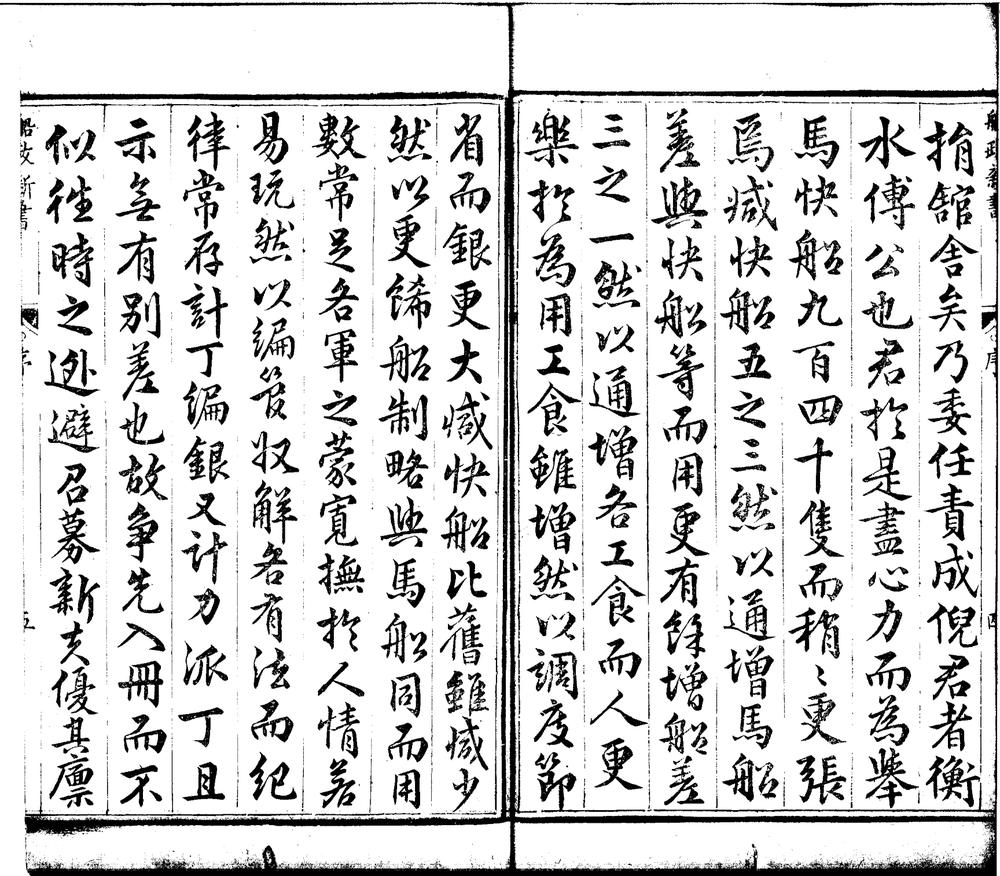 船政新書
序
四
捐館舍矣乃委任責成倪君者衡
水傅公也君於是盡心力而為舉
馬快船九百四十隻而稍〻更張
焉減快船五之三然以通增馬船
差與快船等而用更有餘增船差
三之一然以通增各工食而人更
樂於為用工食雖增然以調度節
省而銀更大減快船比舊雖減少
然以更餙船制略與馬船同而用
數常足各軍之蒙寬撫於人情若
易玩然以編審收解各有法而紀
律常存計丁編銀又計力派丁且
示無有別差也故爭先入冊而不
似徃時之逃避召募新夫優其廪
船政新書
序
五